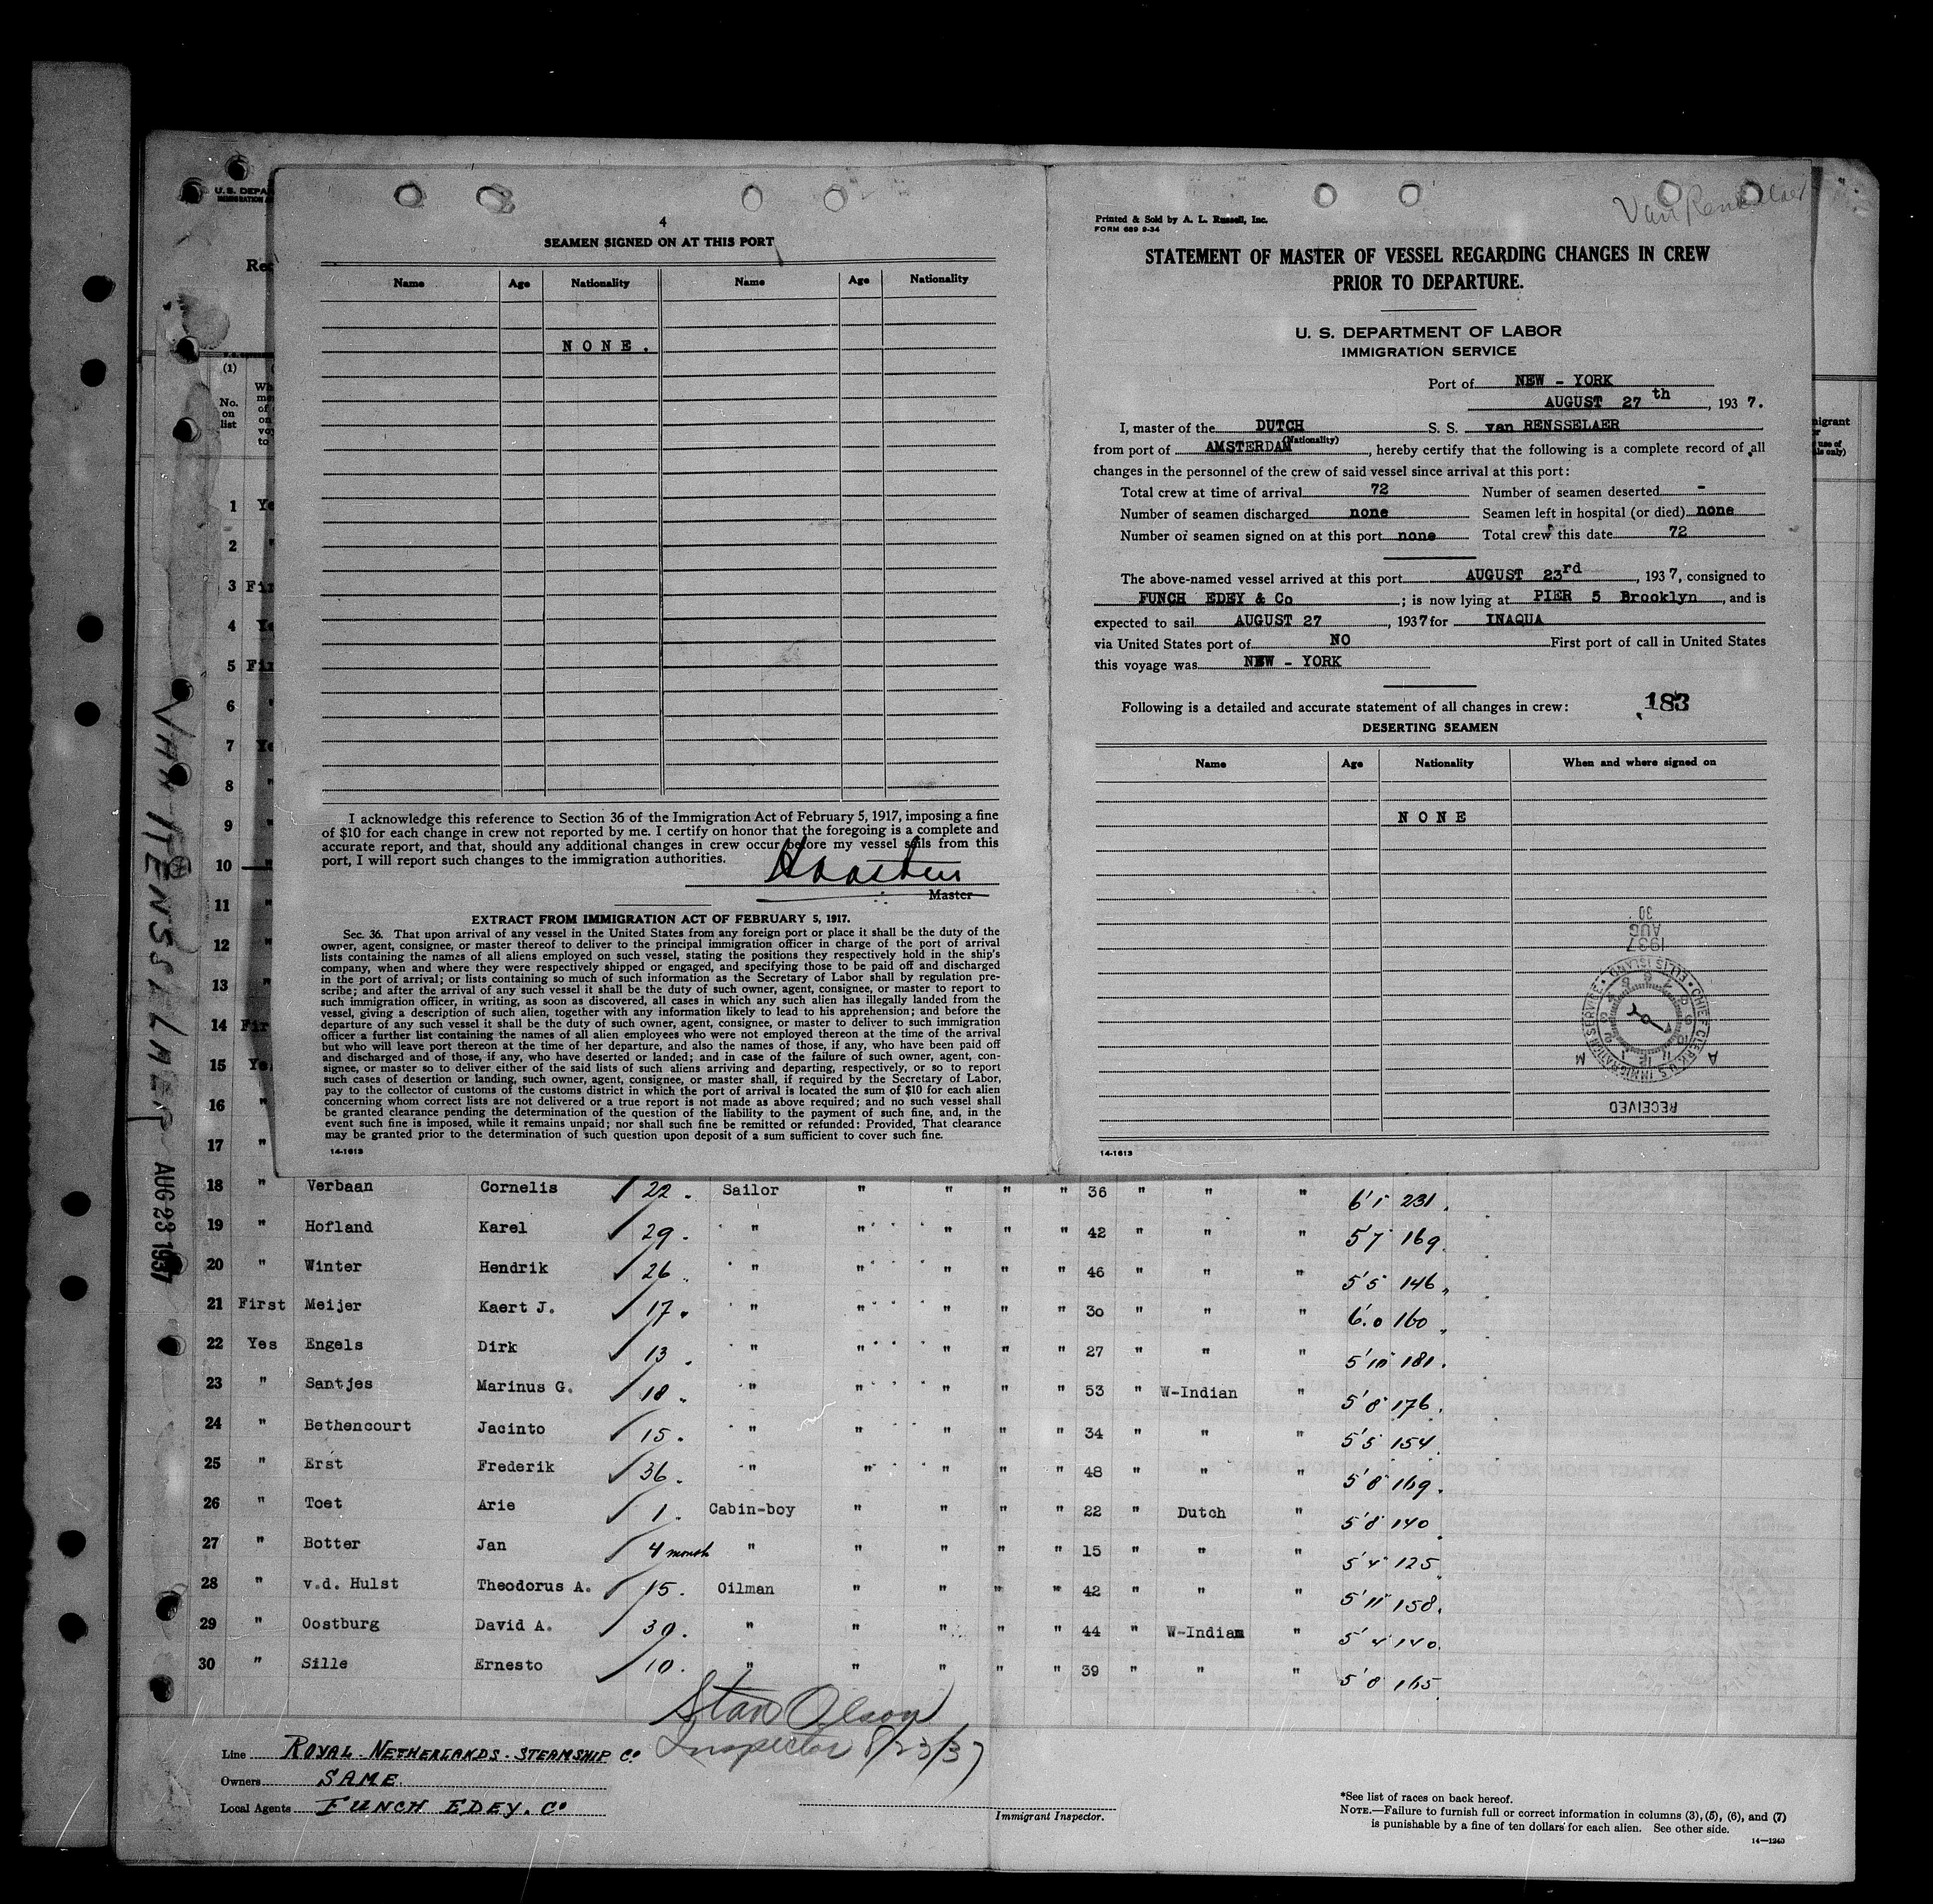 VAN RENSSELAER AUG 23 1937
U. S. DEPA
4
SEAMEN SIGNED ON AT THIS PORT
Name Age Nationality Name Age Nationality
NONE.
I acknowledge this reference to Section 36 of the Immigration Act of February 5, 1917, imposing a fine
of $10 for each change in crew not reported by me. I certify on honor that the foregoing is a complete and
accurate report, and that, should any additional changes in crew occur before my vessel sails from this
port, I will report such changes to the immigration authorities.
Master
EXTRACT FROM IMMIGRATION ACT OF FEBRUARY 5, 1917.
Sec. 36. That upon arrival of any vessel in the United States from any foreign port or place it shall be the duty of the
owner, agent, consignee, or master thereof to deliver to the principal immigration officer in charge of the port of arrival
lists containing the names of all aliens employed on such vessel, stating the positions they respectively hold in the ship's
company, when and where they were respectively shipped or engaged, and specifying those to be paid off and discharged
in the port of arrival; or lists containing so much of such information as the Secretary of Labor shall by regulation pre-
scribe; and after the arrival of any such vessel it shall be the duty of such owner, agent, consignee, or master to report to
such immigration officer, in writing, as soon as discovered, all cases in which any such alien has illegally landed from the
vessel, giving a description of such alien, together with any information likely to lead to his apprehension; and before the
departure of any such vessel it shall be the duty of such owner, agent, consignee, or master to deliver to such immigration
officer a further list containing the names of all alien employees who were not employed thereon at the time of the arrival
but who will leave port thereon at the time of her departure, and also the names of those, if any, who have been paid off
and discharged and of those, if any, who have deserted or landed; and in case of the failure of such owner, agent, con-
signee, or master so to deliver either of the said lists of such aliens arriving and departing, respectively, or so to report
such cases of desertion or landing, such owner, agent, consignee, or master shall, if required by the Secretary of Labor,
pay to the collector of customs of the customs district in which the port of arrival is located the sum of $10 for each alien
concerning whom correct lists are not delivered or a true report is not made as above required; and no such vessel shall
be granted clearance pending the determination of the question of the liability to the payment of such fine, and, in the
event such fine is imposed, while it remains unpaid; nor shall such fine be remitted or refunded: Provided, That clearance
may be granted prior to the determination of such question upon deposit of a sum sufficient to cover such fine.
14-1613
Van Rensselaer
Printed & Sold by A. L. Russell, Inc.
FORM 689 9-34
STATEMENT OF MASTER OF VESSEL REGARDING CHANGES IN CREW
PRIOR TO DEPARTURE.
U. S. DEPARTMENT OF LABOR
IMMIGRATION SERVICE
Port of NEW - YORK
AUGUST 27th, 1937.
I, master of the DUTCH S. S. van RENSSELAER
(Nationality)
from port of AMSTERDAM, hereby certify that the following is a complete record of all
changes in the personnel of the crew of said vessel since arrival at this port:
Total crew at time of arrival 72 Number of seamen deserted -
Number of seamen discharged none Seamen left in hospital (or died) none
Number of seamen signed on at this port none Total crew this date 72
The above-named vessel arrived at this port AUGUST 23rd, 1937, consigned to
FUNCH EDEY & Co; is now lying at PIER 5 Brooklyn, and is
expected to sail AUGUST 27, 1937 for INAQUA
via United States port of NO First port of call in United States
this voyage was NEW - YORK
183
Following is a detailed and accurate statement of all changes in crew:
DESERTING SEAMEN
Name Age Nationality When and where signed on
NONE
1937 AUG 30
CHIEF CLERK U.S. IMMIGRATION SERVICE ELLIS ISLAND
A M
RECEIVED
14-1613
(1)
No.
on
list
1 Ye
2 "
3 Fir
4 Ye
5 Fir
6 "
7 Ye
8 "
9 "
10
11 "
12 "
13 "
14 Fir
15 Ye
16 "
17 "
18 " Verbaan Cornelis 22. Sailor " " " " 36 " " " 6'1" 231.
19 " Hofland Karel 29. " " " " " 42 " " " 5'7" 169.
20 " Winter Hendrik 26. " " " " " 46 " " " 5'5" 146.
21 First Meijer Kaert J. 17. " " " " " 30 " " " 6'.0 160
22 Yes Engels Dirk 13. " " " " " 27 " " " 5'10" 181.
23 " Santjes Marinus G. 18. " " " " " 53 " W-Indian " 5'8" 176.
24 " Bethencourt Jacinto 15. " " " " " 34 " " " 5'5" 154.
25 " Erst Frederik 36. " " " " " 48 " " " 5'8" 169.
26 " Toet Arie 1. Cabin-boy " " " " 22 " Dutch " 5'8" 140.
27 " Botter Jan 4 month " " " " " 15 " " " 5'4" 125.
28 " v.d. Hulst Theodorus A. 15. Oilman " " " " 42 " " " 5'11" 158.
29 " Oostburg David A. 30. " " " " " 44 " W-Indian " 5'4" 140.
30 " Sille Ernesto 10. " " " " " 39 " " " 5'8" 165.
Stan Olson
Inspector 8/23/37
Line ROYAL NETHERLANDS STEAMSHIP Co
Owners SAME
Local Agents FUNCH EDEY. Co
Immigrant Inspector.
*See list of races on back hereof.
NOTE.—Failure to furnish full or correct information in columns (3), (5), (6), and (7)
is punishable by a fine of ten dollars for each alien. See other side.
14—1240